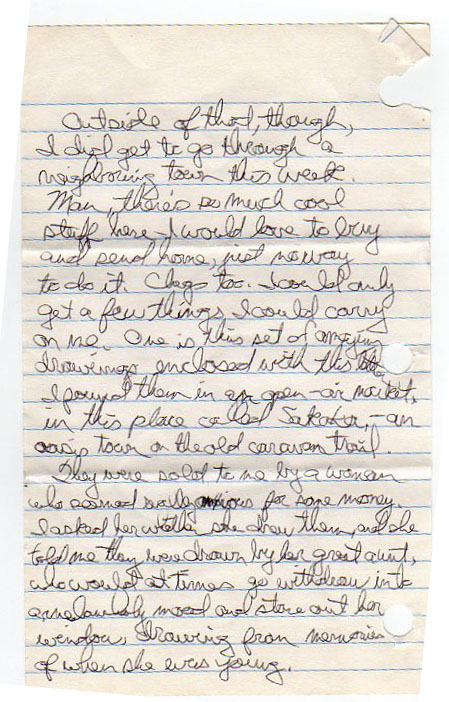 Outside of that, though,
I did get to go through a
neighboring town this week.
Man, there's so much cool
stuff here I would love to buy
and send home, just no way
to do it. Cheap too. I could only
get a few things I could carry
on me. One is this set of amazing
drawings enclosed with this
I found them in an open-air market,
in this place called Sakaka, - an
oasis town on the old caravan trail.
They were sold to me by a woman
who seemed really anxious for some money.
I asked her whether she drew them, and she
told me they were drawn by her great aunt,
who would at times go withdraw into
a melancholy mood and stare out her
window, drawing from memories
of when she was young.